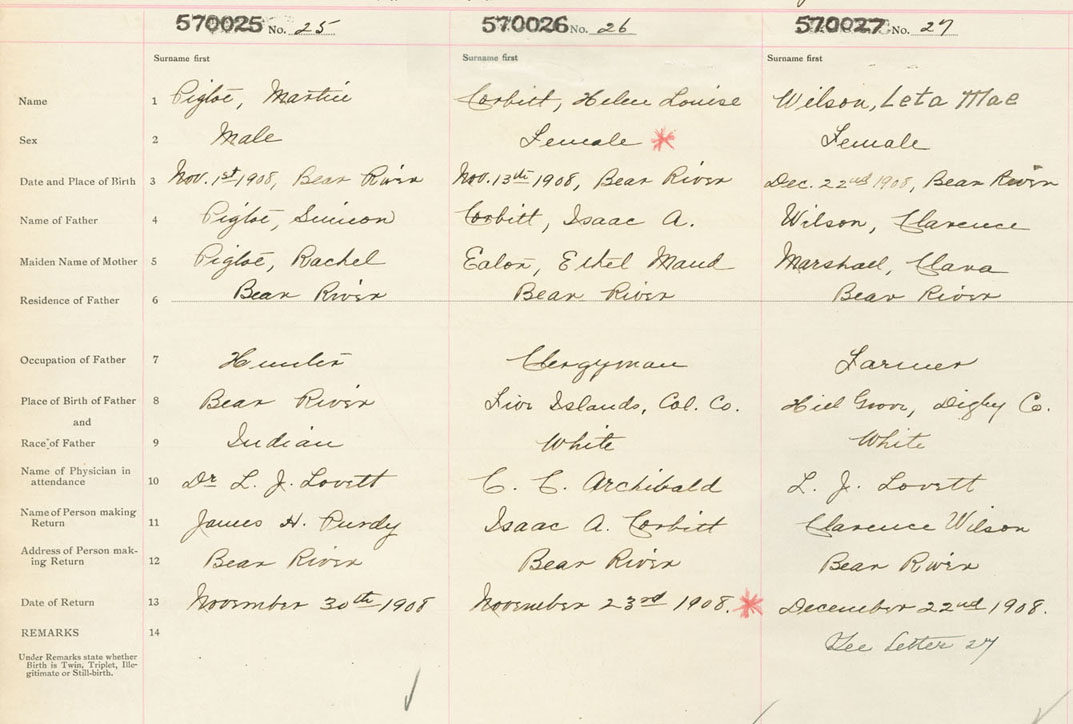 570025 No. 25 570026 No. 26 570027 No. 27
Surname first Surname first Surname first
Name 1 Pigtoe, Martin Corbitt, Helen Louise Wilson, Leta Mae
Sex 2 Male Female * Female
Date and Place of Birth 3 Nov. 1st 1908, Bear River Nov. 13th 1908, Bear River Dec. 22nd 1908, Bear River
Name of Father 4 Pigtoe, Simeon Corbitt, Isaac A. Wilson, Clarence
Maiden Name of Mother 5 Pigtoe, Rachel Eaton, Ethel Maud Marshall, Clara
Residence of Father 6 Bear River Bear River Bear River
Occupation of Father 7 Hunter Clergyman Farmer
Place of Birth of Father 8 Bear River Five Islands, Col. Co. Hill Grove, Digby Co.
and
Race of Father 9 Indian White White
Name of Physician in
attendance 10 Dr L. J. Lovett C. C. Archibald L. J. Lovett
Name of Person making
Return 11 James H. Purdy Isaac A. Corbitt Clarence Wilson
Address of Person mak-
ing Return 12 Bear River Bear River Bear River
Date of Return 13 November 30th 1908 November 23rd 1908. * December 22nd 1908.
REMARKS 14 See Letter 27
Under Remarks state whether
Birth is Twin, Triplet, Ille-
gitimate or Still-birth.